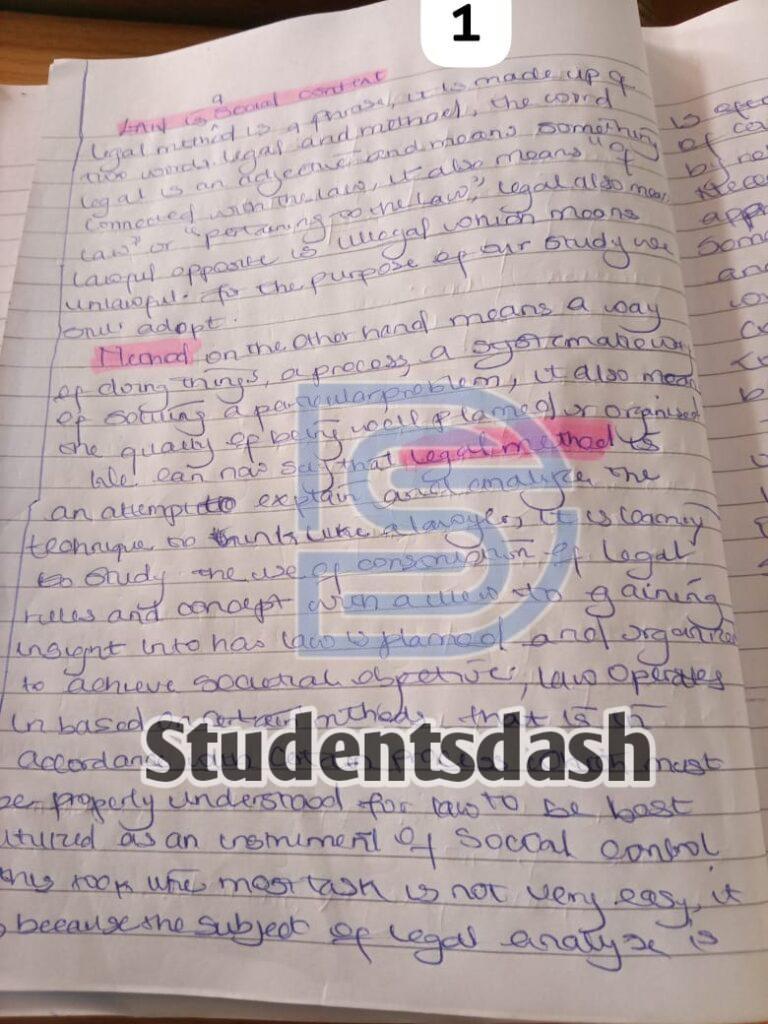 1
a
Law is Social context
legal method is a phrase, it is made up of
two words legal and method, the word
legal is an adjective and means something
connected with the law, it also means "of
law" or "pertaining to the law," legal also mean
lawful opposite is illegal which means
unlawful. for the purpose of our study we
will adopt.
Method on the other hand means a way
of doing things, a process, a systematic way
of solving a particular problem, it also mean
the quality of being well planned or organised
We can now say that legal method is
an attempt to explain and analyze the
technique to think like a lawyer, it is
to study the use of of legal
rules and concept with a view to gaining
insight into how law is planned and organized
to achieve societal objective, law operates
in based on certain methods, that is in
accordance with certain process which must
be properly understood for law to be best
utilized as an instrument of Social control
this task is not very easy, it
because the subject of legal analyze is
is
of
by
Some
and
Studentsdash